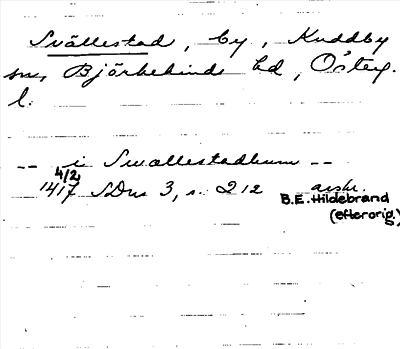 Svällestad, by, Kuddby
sn, Björkekinds hd, Österg.
l.
-- i Swællestadhum --
4/2
1417 SDns 3, s. 212 avskr.
B.E. Hildebrand
(efter orig.)